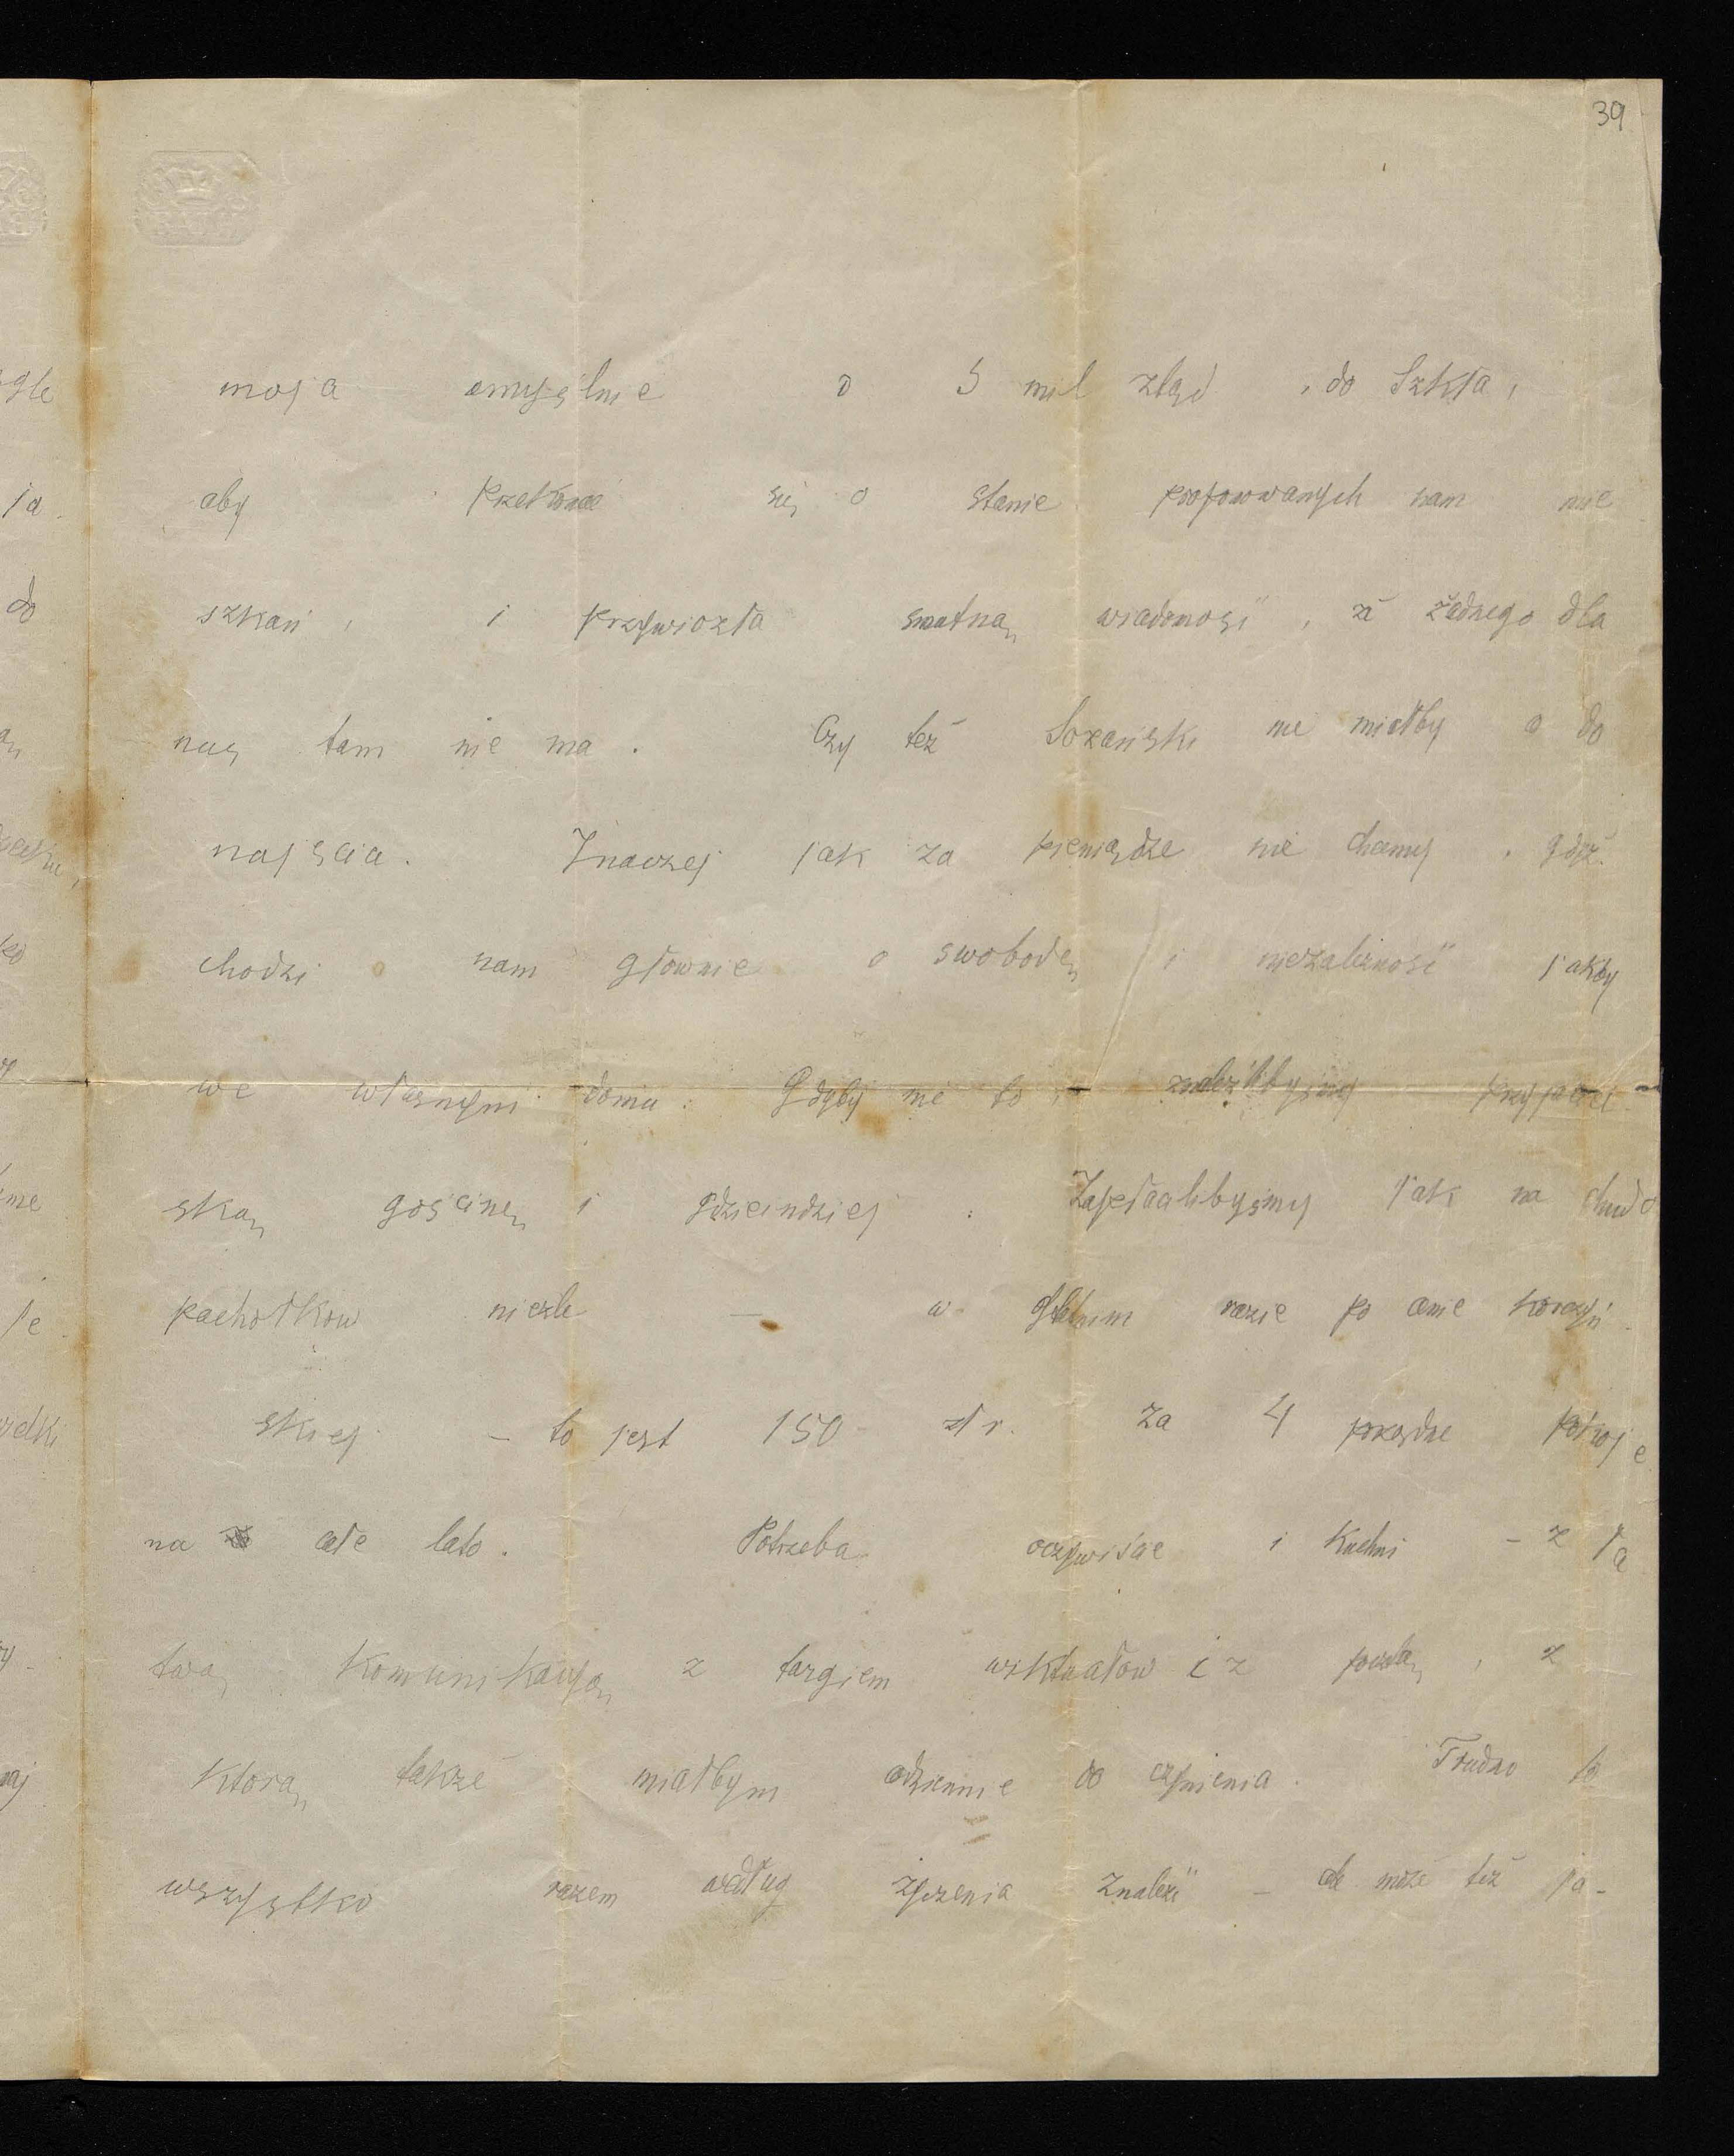 39
moja umyślnie o 5 mil ztąd, do Szkła,
aby przekonać się o stanie proponowanych nam mie
szkań, i przywiozła smutną wiadomość, że żadnego dla
nas tam nie ma. Czy też Sozański nie miałby do
najścia. Inaczej jak za pieniądze nie chcemy, gdyż
chodzi o nam głownie o swobodę i niezależność jakby
we własnym domu. Gdyby nie to, znaleźlibyśmy przyjaciel
ską gościnę i gdzieindziej. Zapłacilibyśmy jak na chudo
pachołkow nieźle — w żadnym razie po cenie korczyń
skiej – to jest 150 złr. za 4 porządne pokoje
na całe lato. Potrzeba oczywiście i Kuchni – z ła
twą Komunikacyą z targiem wiktuałow i z pocztą, z
Ktorą także miałbym codziennie do czynienia. Trudno to
wszystko razem według życzenia znaleźć – ale może też ja-